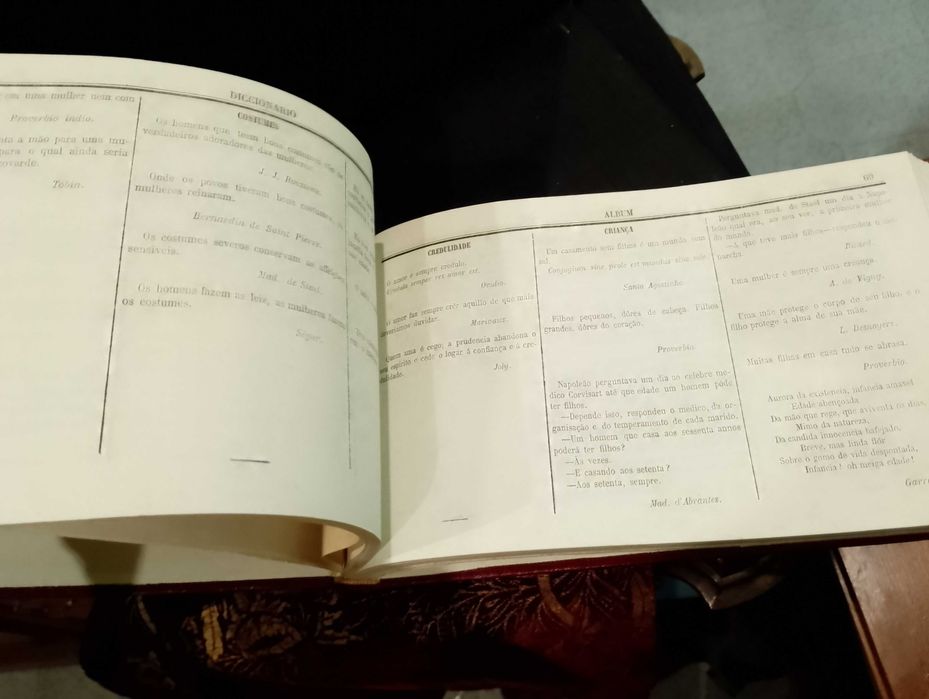 em uma mulher nem com
Proverbio indio.
a mão para uma mu-
para o qual ainda seria
covarde.
Tobin.
DICCIONARIO
COSTUMES
Os homens que teem bons costumes são os
verdadeiros adoradores das mulheres.
J. J. Rousseau.
Onde os povos tiveram bons costumes, as
mulheres reinaram.
Bernardin de Saint Pierre.
Os costumes severos conservam as affeições
sensiveis.
Mad. de Stael.
Os homens fazem as leis, as mulheres fazem
os costumes.
Segur.
ALBUM
69
CREDULIDADE
O amor é sempre credulo.
Credula semper res amor est.
Ovidio.
O amor faz sempre crêr aquillo de que mais
deveriamos duvidar.
Marivaux.
Quem ama é cego; a prudencia abandona o
seu espirito e cede o logar á confiança e á cre-
dulidade.
Joly.
CRIANÇA
Um casamento sem filhos é um mundo sem
sol.
Conjugium sine prole est mundus sine sole
Santo Agostinho.
Filhos pequenos, dôres de cabeça. Filhos
grandes, dôres do coração.
Proverbio.
Napoleão perguntava um dia ao celebre me-
dico Corvisart até que edade um homem póde
ter filhos.
—Depende isso, respondeu o medico, da or-
ganisação e do temperamento de cada marido.
—Um homem que casa aos sessenta annos
poderá ter filhos?
—Às vezes.
—E casando aos setenta?
—Aos setenta, sempre.
Mad. d'Abrantes.
Perguntava mad. de Stael um dia a Napo-
leão qual era, ao seu ver, a primeira mulher
do mundo.
—A que teve mais filhos—respondeu o mo-
narcha.
Uma mulher é sempre uma criança.
A. de Vigny.
Uma mãe protege o corpo de seu filho, e o
filho protege a alma de sua mãe.
L. Desnoyers.
Muitas filhas em casa tudo se abrasa.
Proverbio.
Aurora da existencia, infancia amavel
Edade abençoada
Da mão que rege, que aviventa os dias,
Mimo da natureza,
Da candida innocencia bafejado,
Breve, mas linda flôr
Sobre o gomo de vida despontada,
Infancia! oh meiga edade!
Garre